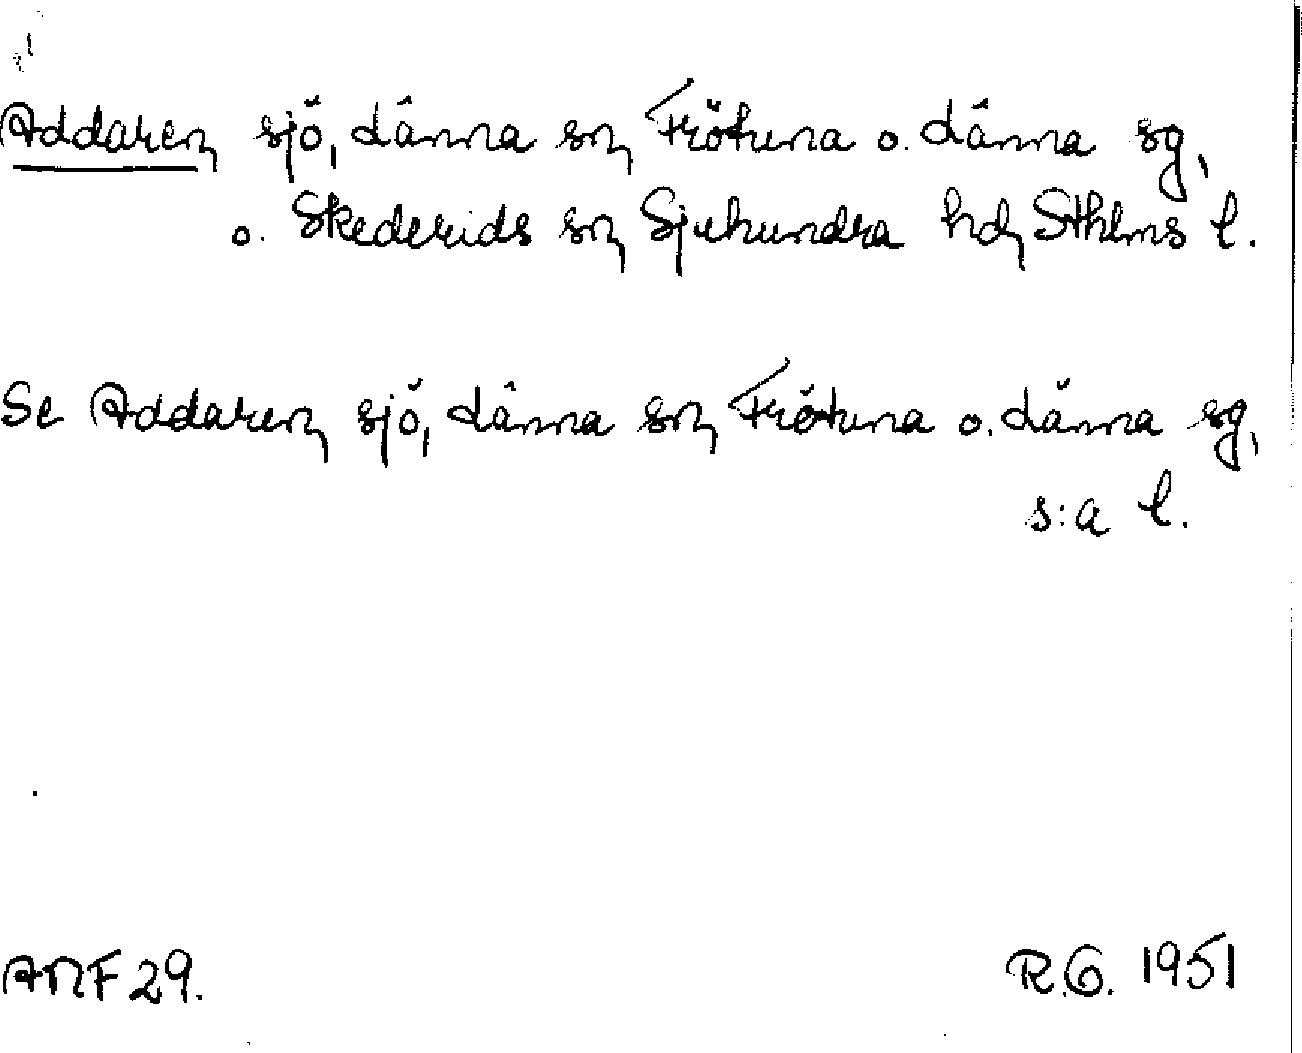 Addaren sjö, Länna sn, Frötuna o. Länna sg,
o. Skederids sn, Sjuhundra hd, Sthlms l.
Se Addaren sjö, Länna sn, Frötuna o. Länna sg,
s:a l.
ANF 29.
R.G. 1951